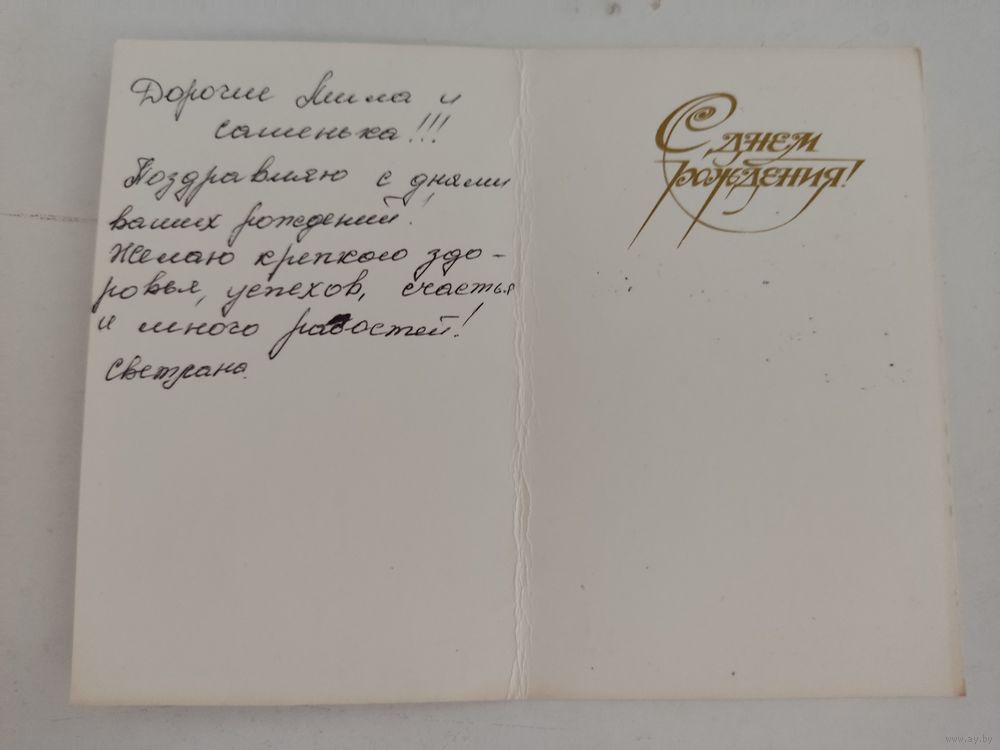 Дорогие Мила и
Сашенька!!!
Поздравляю с днями
ваших рождений!
Желаю крепкого здо-
ровья, успехов, счастья
и много радостей!
Светлана.
С днем
рождения!
www.ay.by